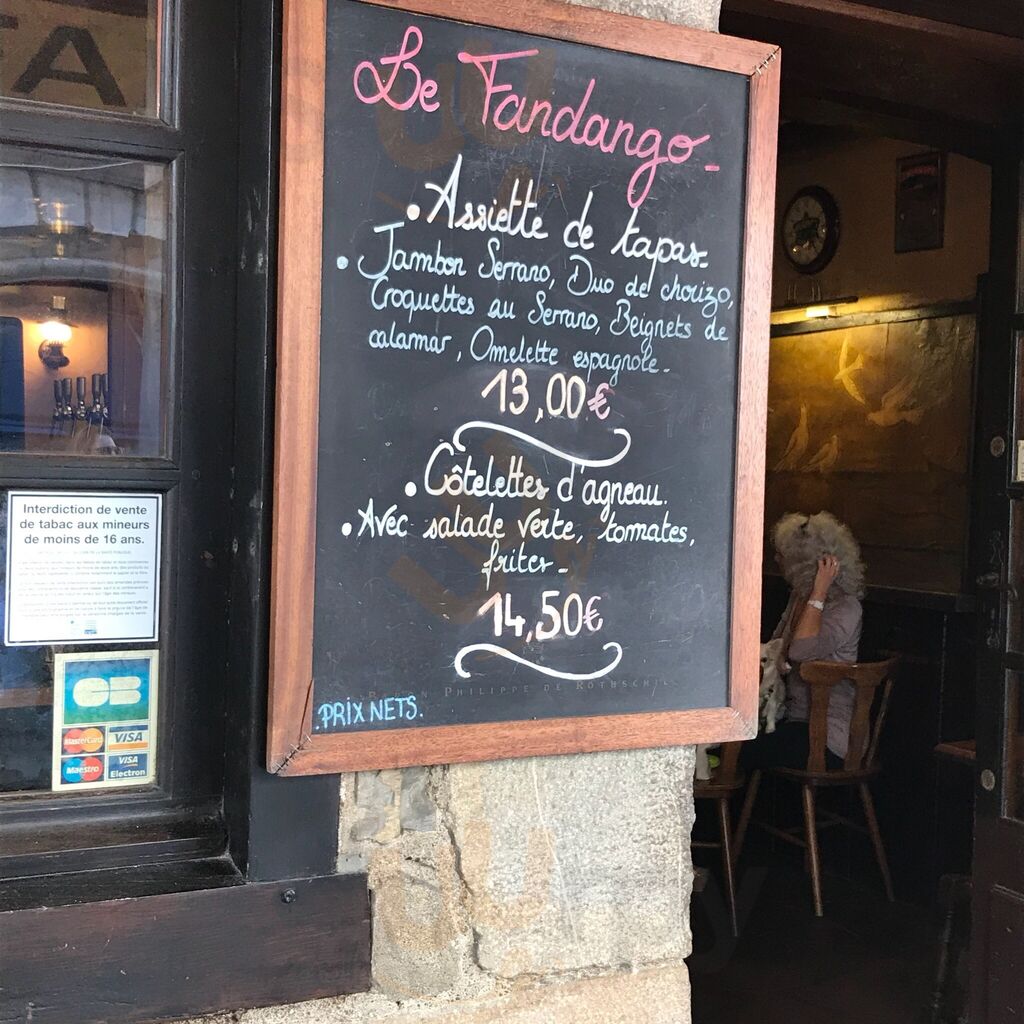 TA
Le Fandango
• Assiette de tapas.
• Jambon Serrano, Duo de chorizo,
Croquettes au Serrano, Beignets de
calamar, Omelette espagnole.
13,00€
• Côtelettes d'agneau.
• Avec salade verte, tomates,
frites.
14,50€
BARON PHILIPPE DE ROTHSCHIL
.PRIX NETS.
Interdiction de vente
de tabac aux mineurs
de moins de 16 ans.
CB
MasterCard VISA
Maestro VISA
Electron